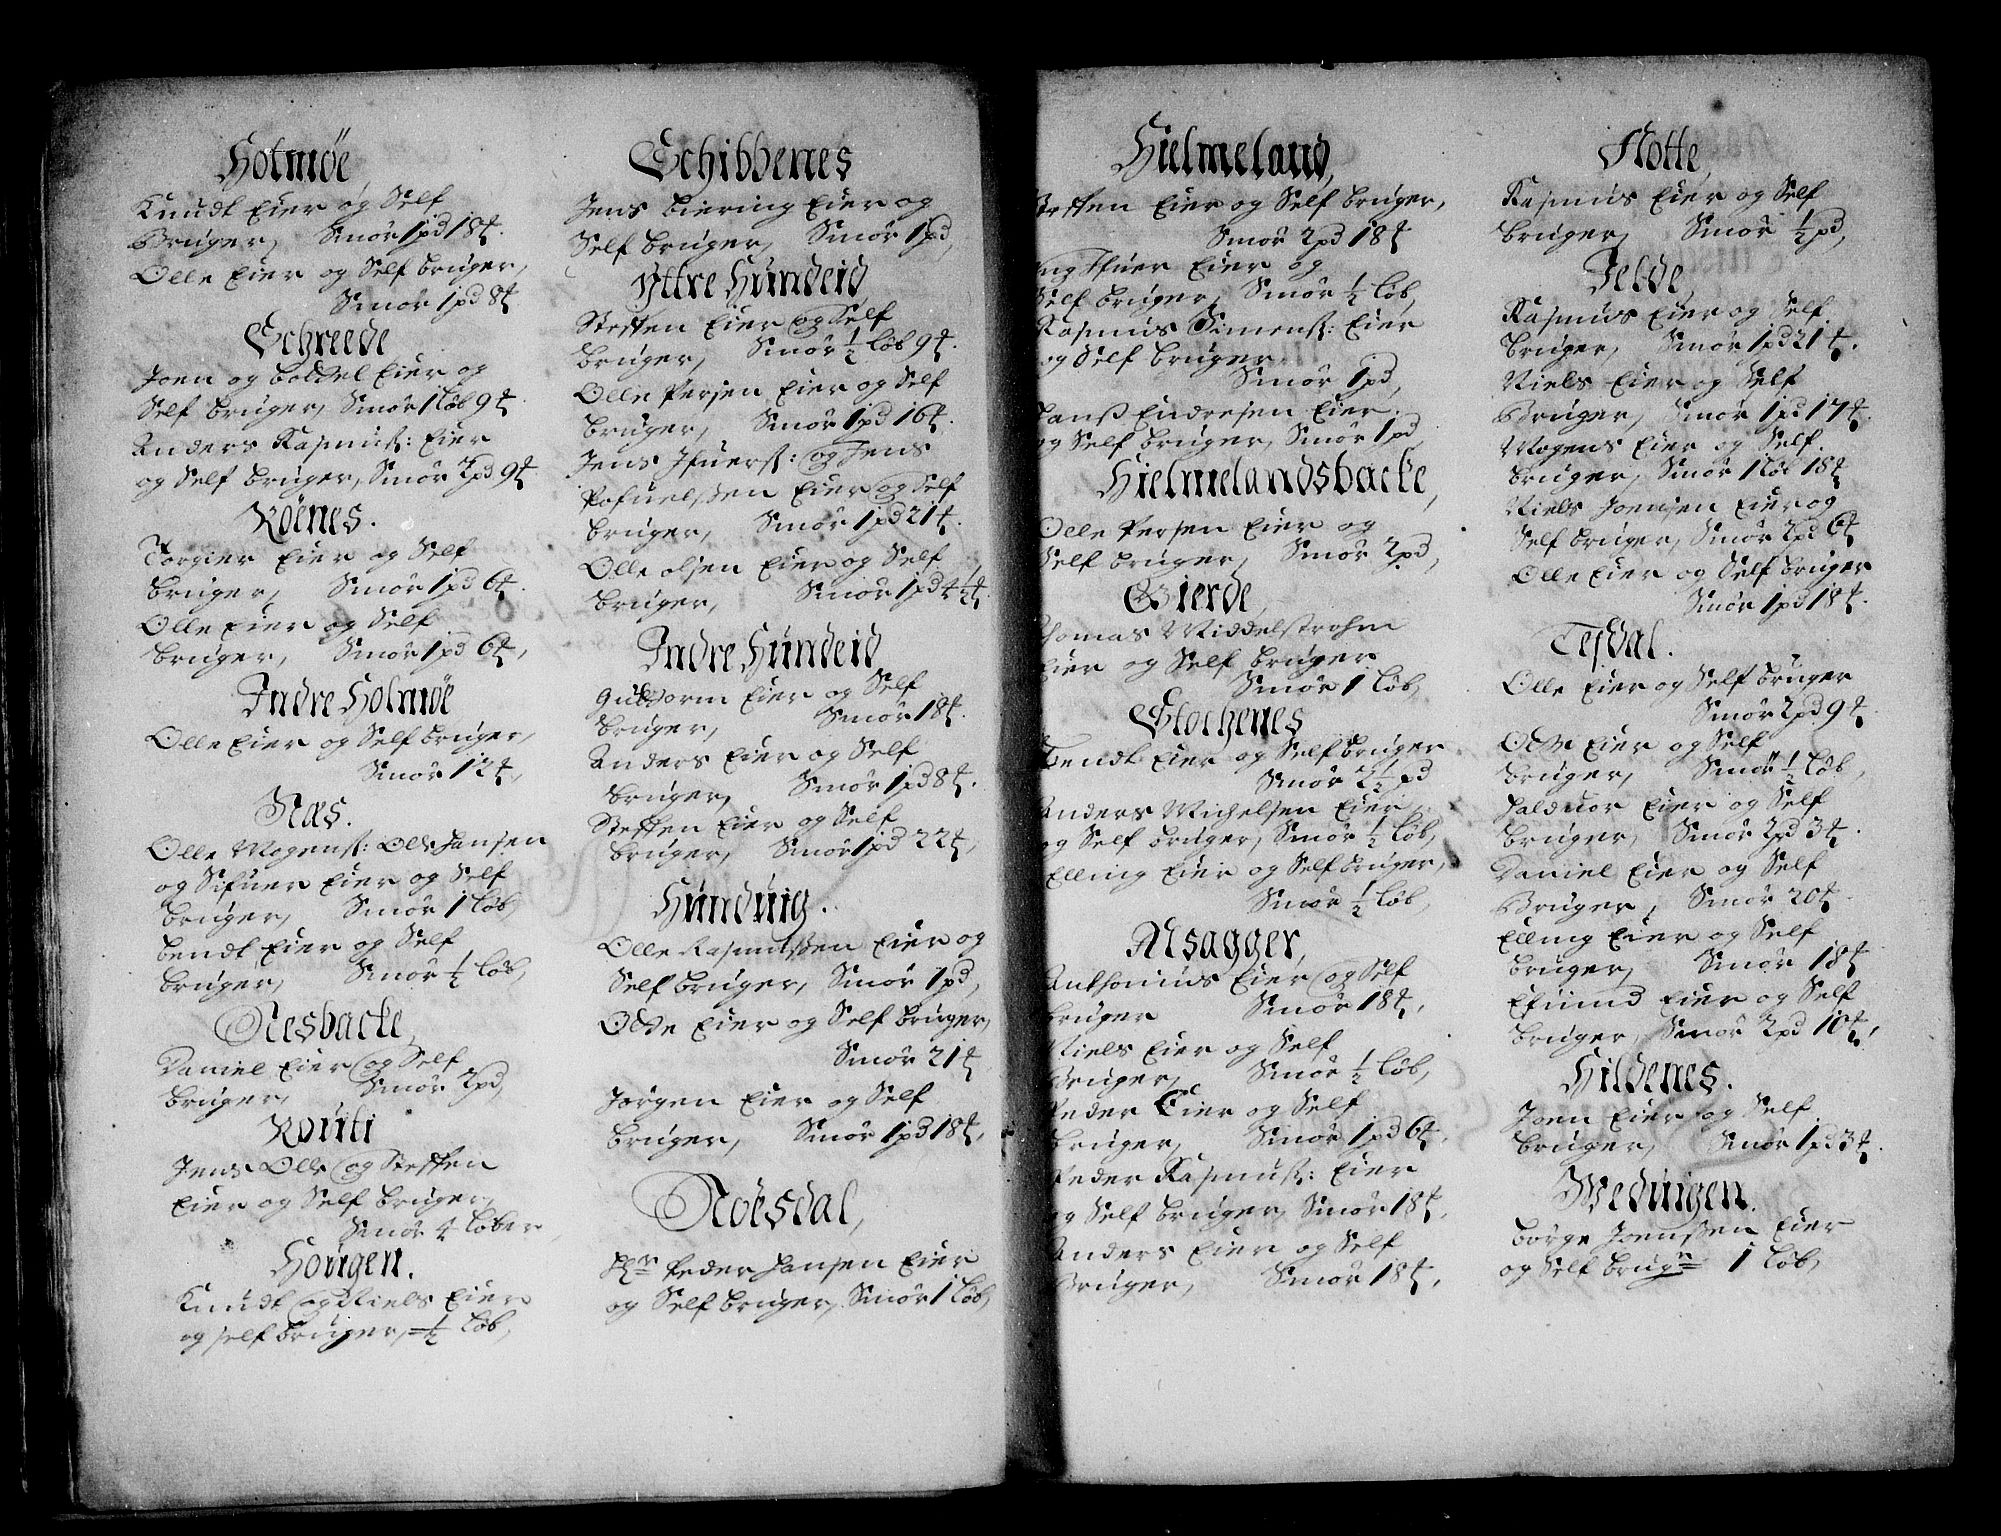 Holmøe
Knudt Eier og Self
Bruger, Smør 1 pd 18 ℔.
Olle Eier og Self bruger,
Smør 1 pd 8 ℔
Schreede
Joen og boldel Eier og
Self bruger, Smør 1 løb 9 ℔.
Anders Rasmuss: Eier
og Self bruger, Smør 2 pd 9 ℔.
Röenes.
Torgier Eier og Self
bruger, Smør 1 pd 6 ℔.
Olle Eier og Self
bruger, Smør 1 pd 6 ℔,
Indre Holmøe
Olle Eier og Self bruger,
Smør 12 ℔,
Næs.
Olle Mogenss: Olle Hansen
og Sifuer Eier og Self
bruger, Smør 1 løb,
bendt Eier og Self
bruger, Smør ½ løb,
Nesbacke,
Daniel Eier og Self
bruger, Smør 2 pd,
Rouiti
Jens Olle og Steffen
Eier og Self bruger,
Smør 4 løber,
Hougen.
Knudt og Niels Eier
og self bruger, ½ løb,
Schibbenes
Jens biering Eier og
Self bruger, Smør 1 pd,
Yttre Hundeid
Steffen Eier og Self
bruger, Smør ½ løb 9 ℔.
Olle Persen Eier og Self
bruger, Smør 1 pd 16 ℔.
Jens Ifuerss: og Jens
Pofuelssen Eier og Self
bruger, Smør 1 pd 21 ℔.
Olle olsen Eier og Self
bruger, Smør 1 pd 4½ ℔.
Indre Hundeid,
Guldorm Eier og Self
bruger, Smør 18 ℔.
Anders Eier og Self
bruger, Smør 1 pd 8 ℔.
Steffen Eier og Self
bruger, Smør 1 pd 22 ℔,
Hunduig.
Olle Rasmussen Eier og
Self bruger, Smør 1 pd,
Olle Eier og Self bruger,
Smør 21 ℔
Jørgen Eier og Self
bruger, Smør 1 pd 18 ℔,
Nöesdal,
Hr Peder Hansen Eier
og Self bruger, Smør 1 løb,
Hielmeland,
Steffen Eier og Self bruger,
Smør 2 pd 18 ℔
Ifuer Eier og
Self bruger, Smør ½ løb,
Rasmus Simenss: Eier
og Self bruger
Smør 1 pd,
Hanss Endresen Eier
og Self bruger, Smør 1 pd,
Hielmelandsbacke,
Olle Persen Eier og
Self bruger, Smør 2 pd,
Gierde,
Thomas Middelstrohm
Eier og Self bruger
Smør 1 løb,
Stochenes
bendt Eier og Self bruger
Smør 2½ pd
Anders Michelsen Eier
og Self bruger, Smør ½ løb,
Elling Eier og Self bruger,
Smør ½ løb,
Alsagger,
Anthonius Eier og Self
bruger Smør 18 ℔,
Niels Eier og Self
Bruger, Smør ½ løb,
Peder Eier og Self
bruger, Smør 1 pd 6 ℔,
Peder Rasmuss: Eier
og Self bruger, Smør 18 ℔,
Anders Eier og Self
Bruger, Smør 18 ℔,
Flotte,
Rasmus Eier og Self
bruger, Smør ½ pd,
Jelde,
Rasmus Eier og Self
bruger, Smør 1 pd 21 ℔.
Niels Eier og Self
Bruger, Smør 1 pd 17 ℔.
Mogens Eier og Self
bruger, Smør 1 løb 18 ℔
Niels Joensen Eier og
Self bruger, Smør 2 pd 6 ℔
Olle Eier og Self bruger
Smør 1 pd 18 ℔.
Tesdal.
Olle Eier og Self bruger
Smør 2 pd 9 ℔
Olle Eier og Self
bruger, Smør ½ løb,
Halduor Eier og Self
bruger, Smør 2 pd 3 ℔.
Daniel Eier og Self
Bruger, Smør 20 ℔.
Elling Eier og Self
bruger, Smør 18 ℔
Efuind Eier og Self
bruger, Smør 2 pd 10 ℔,
Hildenes.
Joen Eier og Self
bruger, Smør 1 pd 3 ℔.
Meduigen.
børge Joenssen Eier
og Self brugr 1 løb,